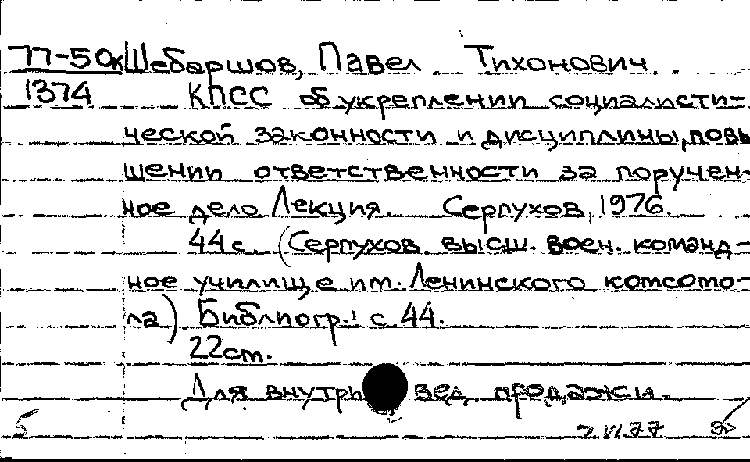 77-50к Шебаршов, Павел Тихонович.
1374 КПСС об укреплении социалисти-
ческой законности и дисциплины, повы
шении ответственности за поручен-
ное дело Лекция. Серпухов, 1976.
44 с. (Серпухов. высш. воен. команд-
ное училище им. Ленинского комсомо-
ла) Библиогр.: с. 44.
22 см.
Для внутри вед. продажи.
5 2.VI.77